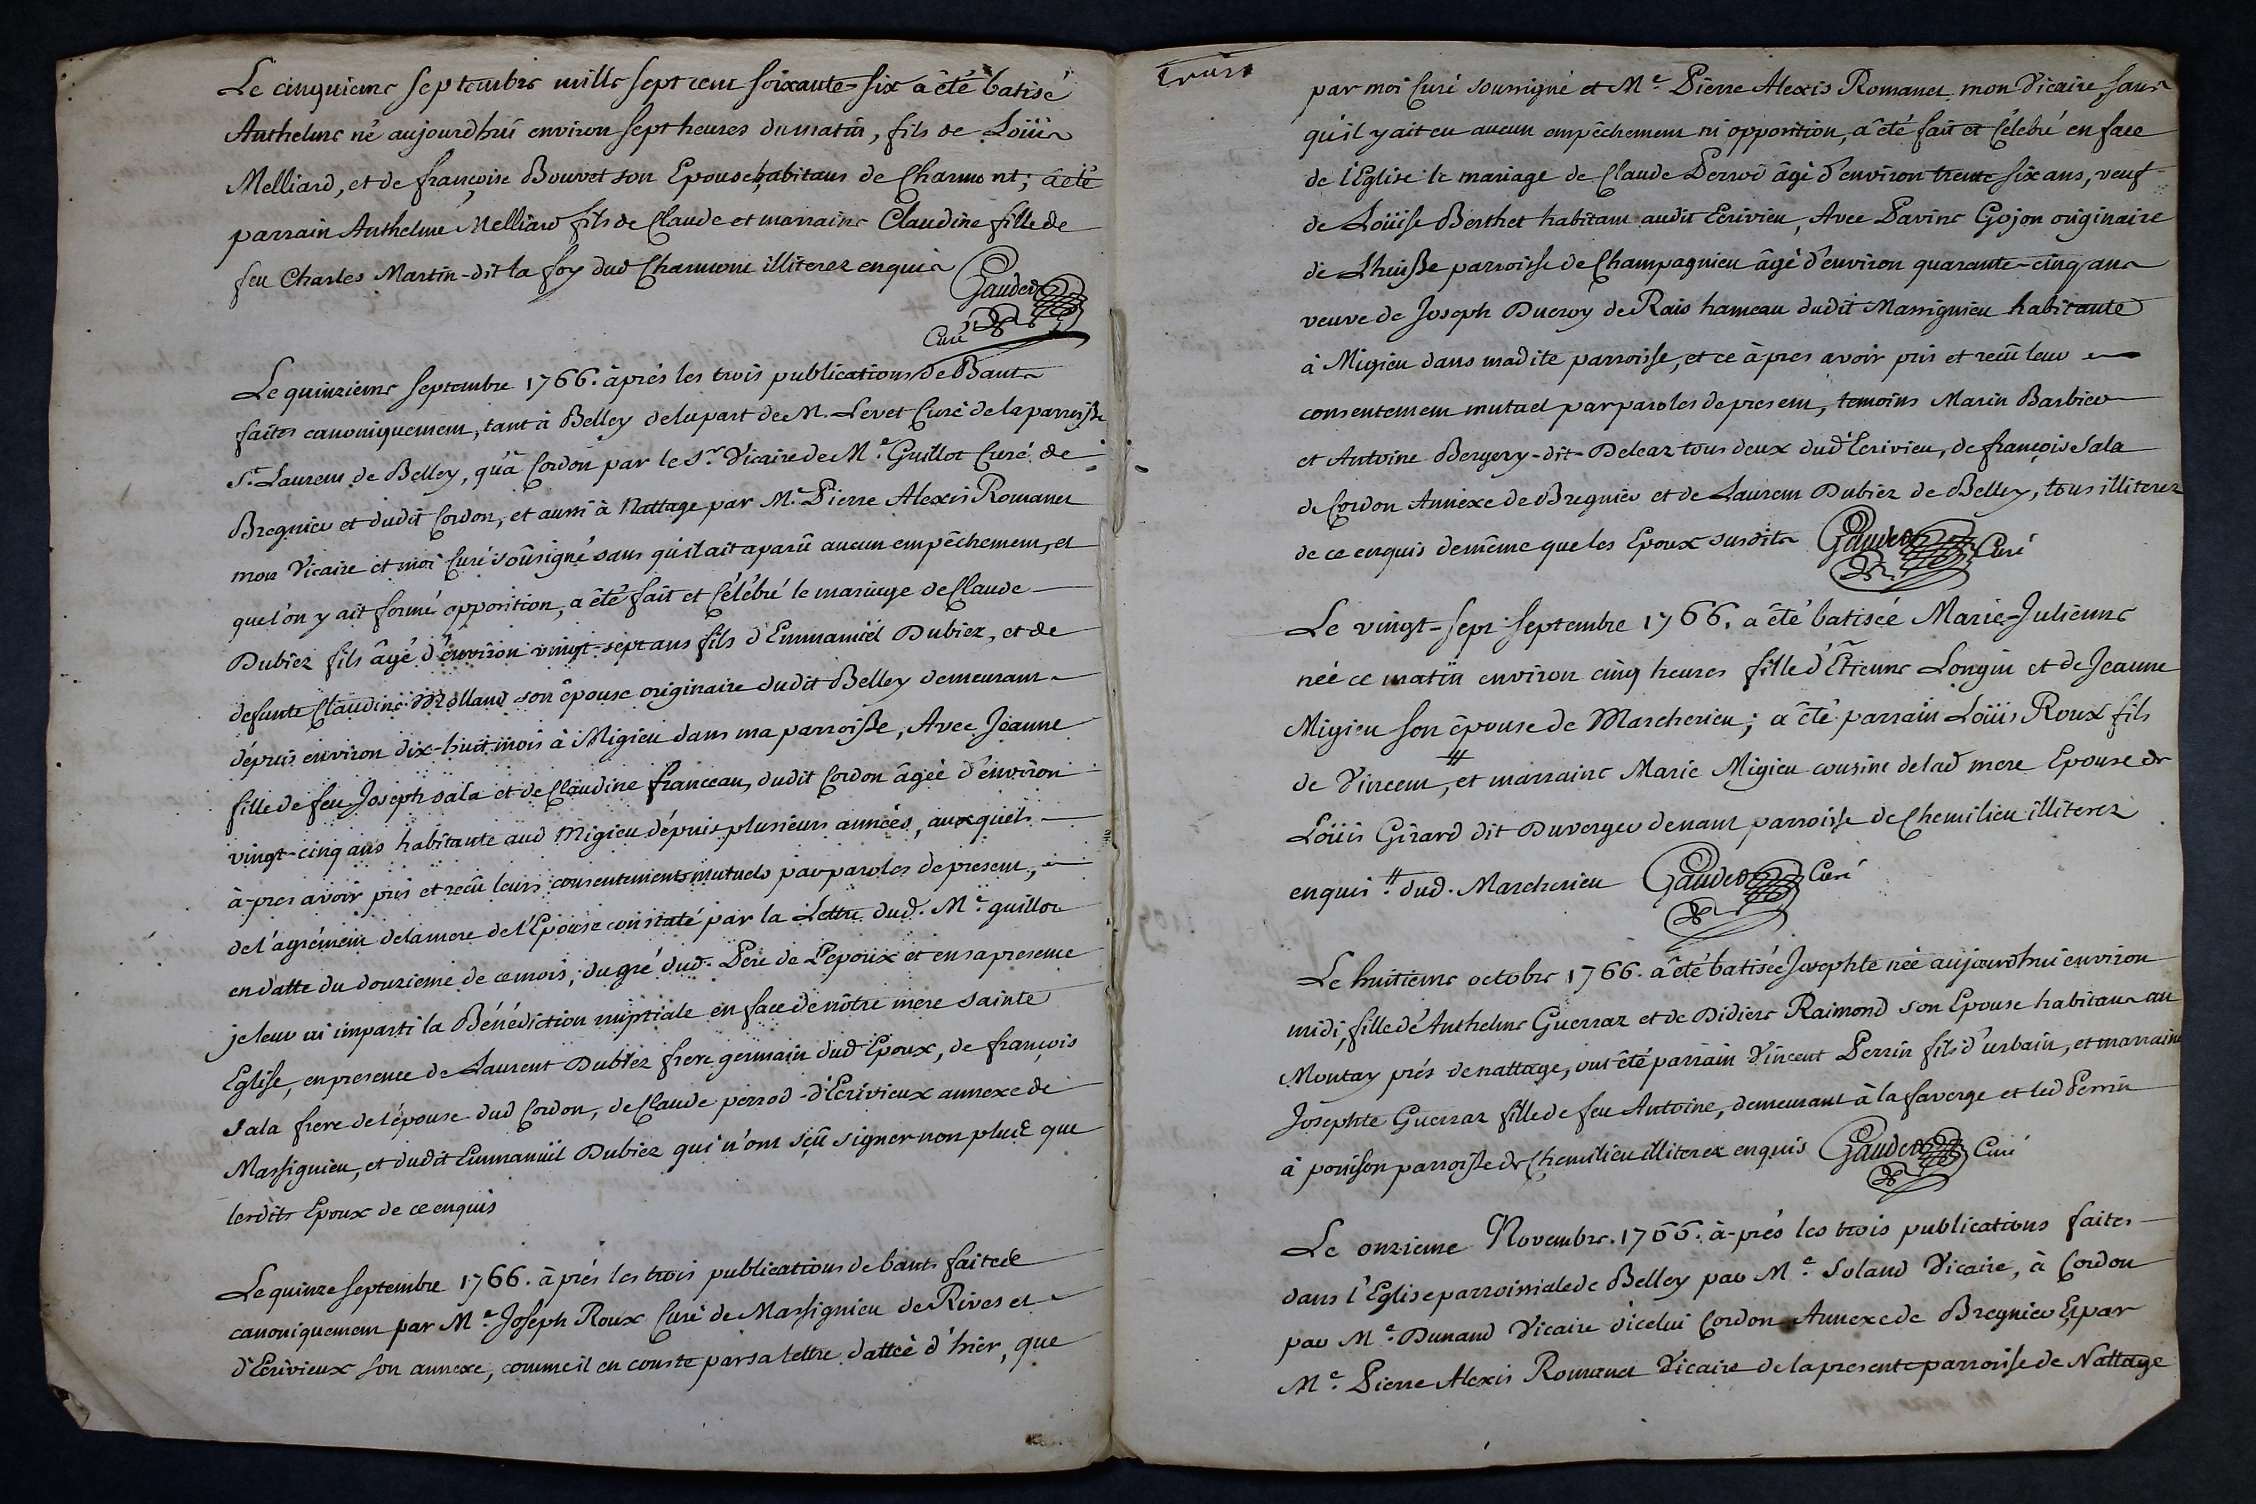 Le cinquieme septembre mille sept cent soixante-six a êté batisé
Anthelme né aujourdhui environ sept heures du matin, fils de Loüis
Melliard, et de françoise Bouvet son Epouse habitans de Charmont; â êté
parrain Anthelme Melliard fils de Claude et marraine Claudine fille de
feu Charles Martin-dit la foy dud Charmont illiterez enquis
Gauden
Curé
Le quinzieme septembre 1766. àprés les trois publications de Bans
faites canoniquement, tant à Belley de la part de M. Levet Curé de la parroisse
St. Laurent de Belley, qu'à Cordon par le Sr. Vicaire de Me. Guillot Curé de
Bregnier et dudit Cordon, et aussi à Nattage par Me. Pierre Alexis Romanet
mon Vicaire et moi Curé soûsigné sans qu'il ait aparû aucun empêchement, et
que l'on y ait formé opposition, a êté fait et Célébré le mariage de Claude
Dubiez fils âgé d'environ vingt-sept ans fils d'Emmanuel Dubiez, et de
defunte Claudine Molland son êpouse originaire dudit Belley demeurant
dépuis environ dix-huit mois à Migieu dans ma parroisse, Avec Jeanne
fille de feu Joseph sala et de Claudine franceau, dudit Cordon âgée d'environ
vingt-cinq ans habitante aud Migieu dépuis plusieurs années, auxquels
à-pres avoir pris et reçû leurs consentements mutuels par paroles de present,
de l'agrément de la mere de l'Epouse constaté par la Lettre dud. Me. guillot
en datte du douzieme de ce mois, du gré dud. Pere de l'Epoux et en sa presence
je leur ai imparti la Bénédiction nuptiale en face de nôtre mere sainte
Eglise, en presence de Laurent Dubiez frere germain dud Epoux, de françois
Sala frere de l'épouse dud Cordon, de Claude perrod-d'Ecrivieux annexe de
Massignieu, et dudit Emmanuël Dubiez qui n'ont sçû signer non plus que
lesdits Epoux de ce enquis
Le quinze septembre 1766. àprés les trois publications de bans faites
canoniquement par Me. Joseph Roux Curé de Massignieu de Rives et
d'Ecrivieux son annexe, comme il en conste par sa lettre dattée d'hier, que
par moi Curé soussigné et Me. Pierre Alexis Romanet mon Vicaire, sans
qu'il y ait eu aucun empêchement ni opposition, a êté fait et Célébré en face
de l'Eglise le mariage de Claude Perrod âgé d'environ trente six ans, veuf
de Loüise Berthet habitant audit Ecrivieu, Avec Pavine Gojon originaire
de Lhuisse parroisse de Champagnieu âgé d'environ quarante-cinq ans
veuve de Joseph Ducroy de Rais hameau dudit Massignieu habitante
à Migieu dans madite parroisse, et ce àpres avoir pris et reçû leur
consentement mutuel par paroles de present, temoins Marin Barbier
et Antoine Bergery-dit-Delcaz tous deux dud Ecrivieu, de françois Sala
de Cordon Annexe de Bregnier et de Laurent Dubiez de Belley, tous illiterez
de ce enquis de même que les Epoux susdits Gauden Curé
Le vingt-sept septembre 1766. a êté batisée Marie-Julienne
née ce matin environ cinq heures fille d'Etienne Longin et de Jeanne
Migieu son êpouse de Marcherieu; a êté parrain Loüis Roux fils
de Vincent, # et marraine Marie Migieu cousine de lad mere Epouse de
Loüis Girard dit Duverger denant parroisse de Chemilieu illiterez
enquis. # dud. Marcherieu Gauden Curé
Le huitieme octobre 1766. a êté batisée Josephte née aujourdhui environ
midi, fille d'Anthelme Guerraz et de Didiere Raimond son Epouse habitans au
Montay prés de nattage, ont êté parrain Vincent Perrin fils d'urbain, et marraine
Josephte Guerraz fille de feu Antoine, demeurant à la faverge et led Perrin
à ponison parroisse de Chemilieu illiterez enquis Gauden Curé
Le onzieme Novembre. 1766. à-prés les trois publications faites
dans l'Eglise parroissiale de Belley par Me. Soland Vicaire, à Cordon
par Me. Dunand Vicaire d'icelui Cordon Annexe de Bregnier & par
Me. Pierre Alexis Romanet Vicaire de la presente parroisse de Nattage